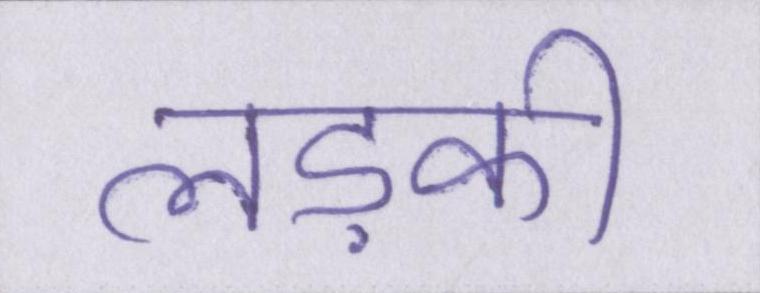 लड़की